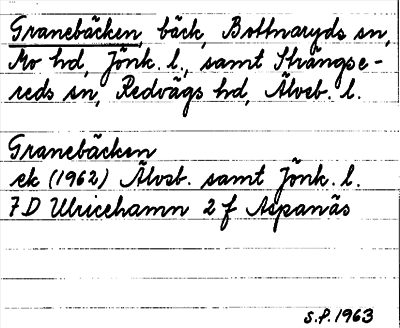 Granebäcken bäck, Bottnaryds sn,
Mo hd, Jönk. l., samt Strängse-
reds sn, Redvägs hd, Älvsb. l.
Granebäcken
ek (1962) Älvsb. samt Jönk. l.
7D Ulricehamn 2 f Aspanäs
S.P. 1963